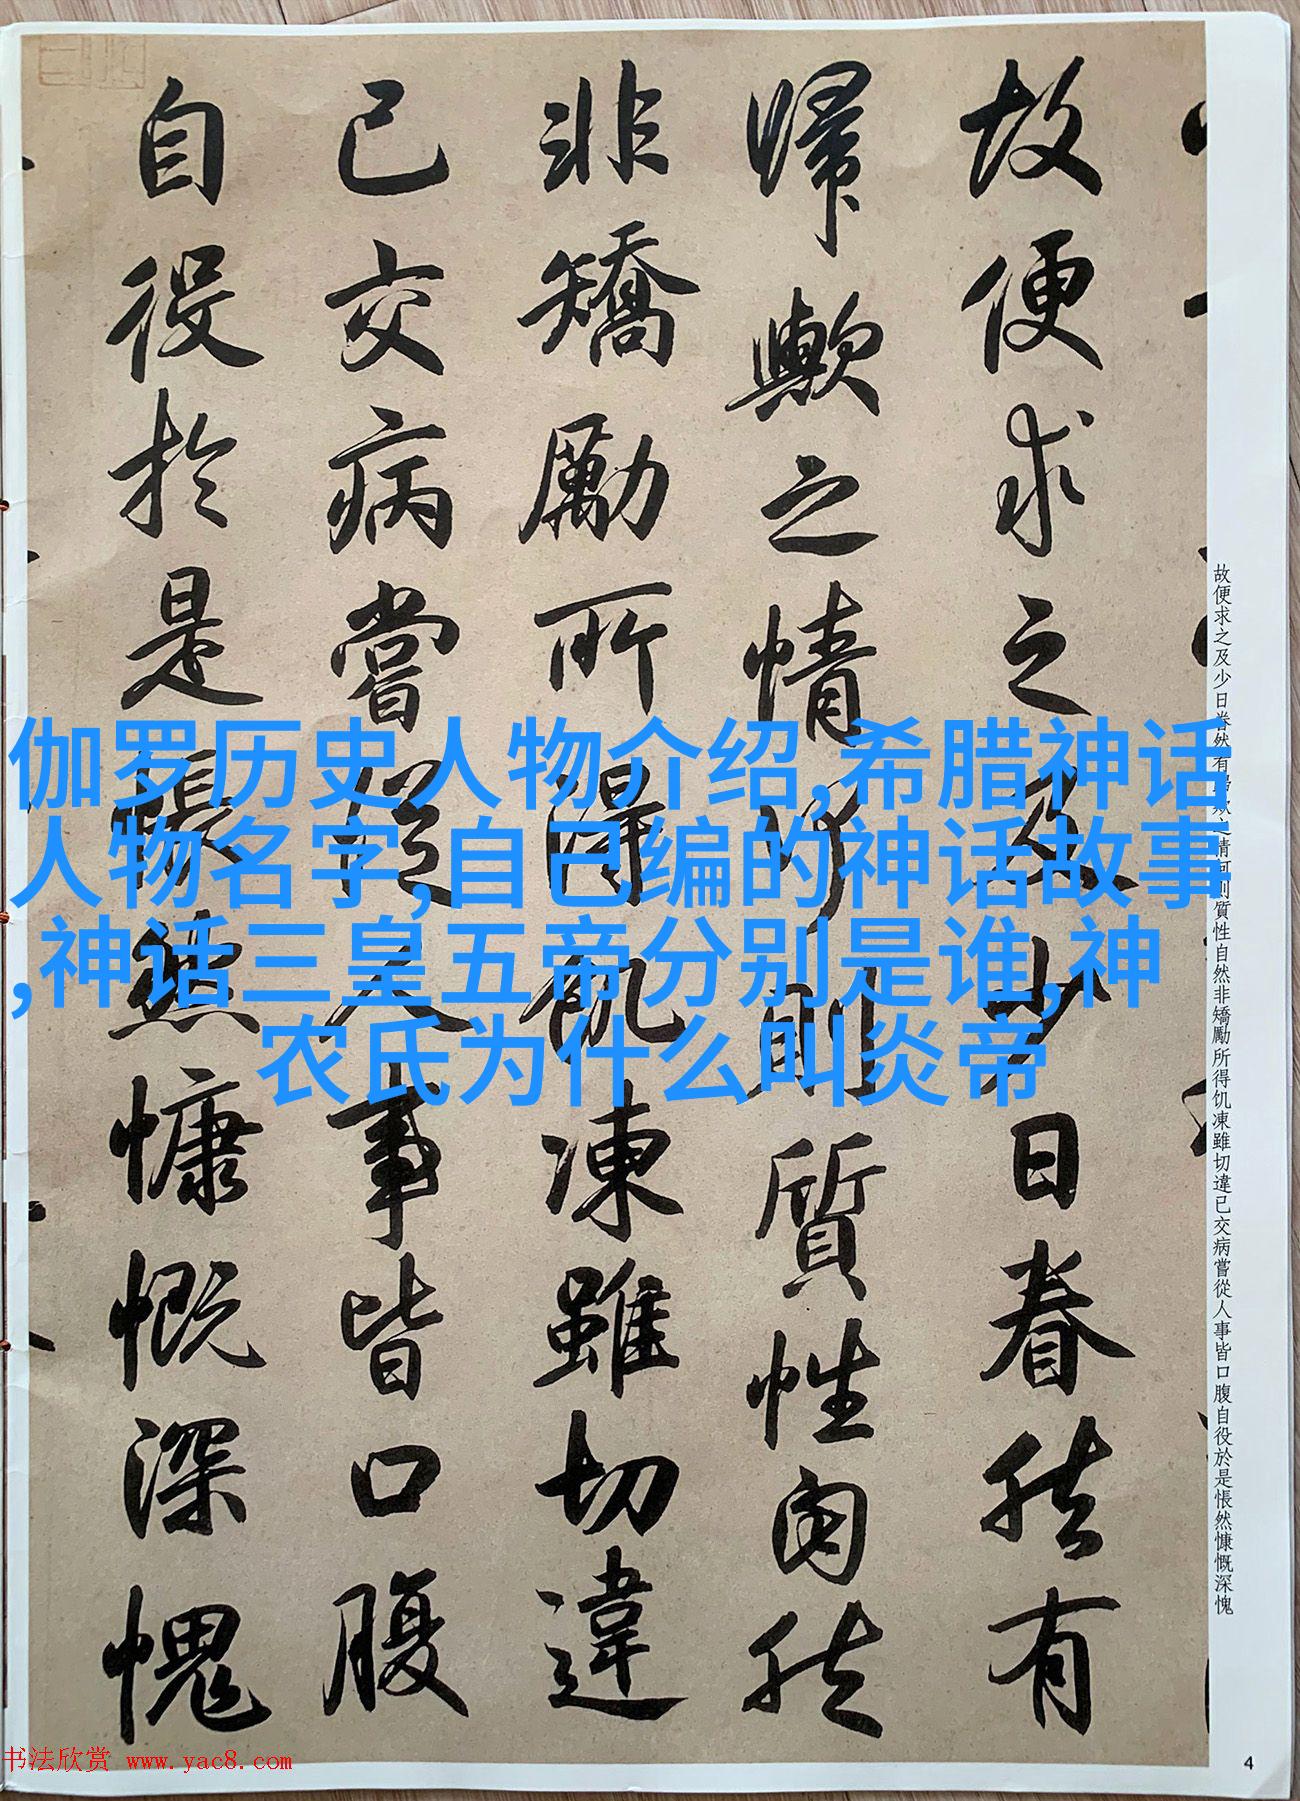 故便求之及少日眷然有
歸歟之情何則質性自然
非矯勵所得飢凍雖切違
已交病嘗從人事皆口腹
自役於是悵然慷慨深愧
故便求之及少日眷然有歸歟之情何則質性自然非矯勵所得饥凍雖切違已交病嘗從人事皆口腹自役於是悵然慷慨深愧
伽罗历史人物介绍,希腊神话
人物名字,自己编的神话故事
,神话三皇五帝分别是谁,神
农氏为什么叫炎帝
书法欣赏 www.yac8.com
4